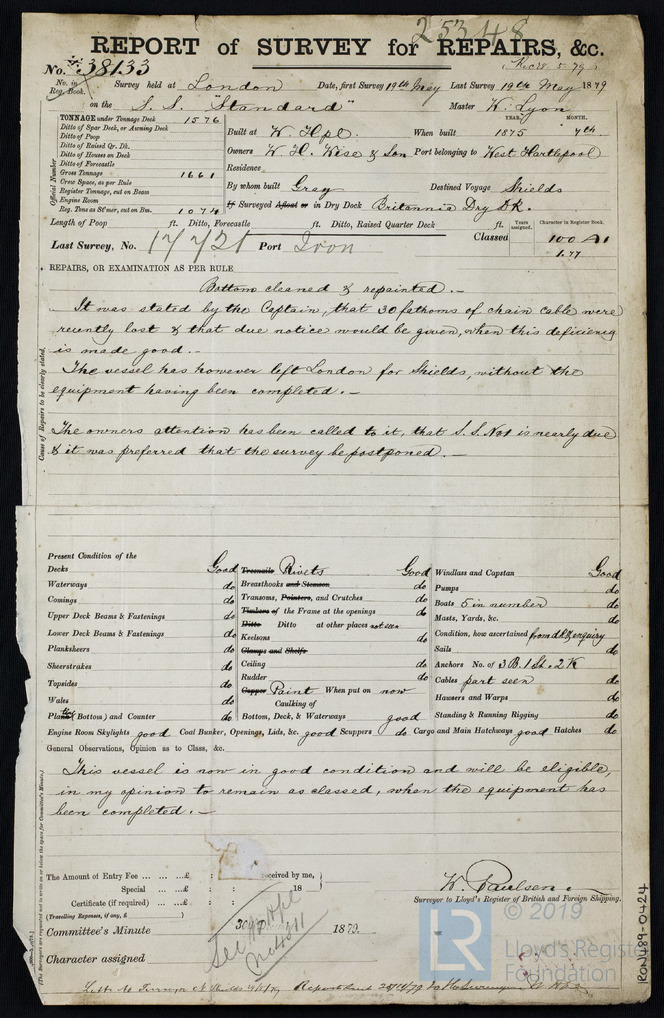 25348
REPORT of SURVEY for REPAIRS, &c.
No. 38133
No. in Reg. Book.
Survey held at London Date, first Survey 19th May Last Survey 19th May 1879
on the S. S. "Standard" Master W. Lyon
TONNAGE under Tonnage Deck 1576
Ditto of Spar Deck, or Awning Deck
Ditto of Poop
Ditto of Raised Qr. Dk.
Ditto of Houses on Deck
Ditto of Forecastle
Gross Tonnage 1661
Crew Space, as per Rule
Register Tonnage, cut on Beam
Engine Room
Reg. Tons as St'mer, cut on Bm. 1074
Official Number
YEAR. MONTH.
Built at W. Hpl. When built 1875 7th.
Owners W. H. Wise & Son Port belonging to West Hartlepool
Residence
By whom built Gray Destined Voyage Shields
If Surveyed Afloat or in Dry Dock Britannia Dry Dk.
Length of Poop ft. Ditto, Forecastle ft. Ditto, Raised Quarter Deck ft.
Years assigned. Character in Register Book.
Last Survey, No. 17721 Port Iron Classed 100 A1
1.77
REPAIRS, OR EXAMINATION AS PER RULE
Cause of Repairs to be clearly stated.
Bottom cleaned & repainted. —
It was stated by the Captain, that 30 fathoms of chain cable were
recently lost & that due notice would be given, when this deficiency
is made good. —
The vessel has however left London for Shields, without the
equipment having been completed. —
The owners attention has been called to it, that S. S. No1 is nearly due
& it was preferred that the survey be postponed. —
Present Condition of the
Decks Good
Waterways do
Comings do
Upper Deck Beams & Fastenings do
Lower Deck Beams & Fastenings do
Planksheers do
Sheerstrakes do
Topsides do
Wales do
Bottom) and Counter do
Treenails Rivets Good
Breasthooks and Stemson do
Transoms, Pointers, and Crutches do
Timbers of the Frame at the openings do
Ditto Ditto at other places not seen
Keelsons do
Clamps and Shelfs
Ceiling do
Rudder do
Copper Paint When put on now
Caulking of
Bottom, Deck, & Waterways good
Windlass and Capstan Good
Pumps do
Boats 5 in number do
Masts, Yards, &c. do
Condition, how ascertained from dk & enquiry
Sails do
Anchors No. of 3 B. 1 St. 2 K do
Cables part seen do
Hausers and Warps do
Standing & Running Rigging do
Engine Room Skylights good Coal Bunker, Openings, Lids, &c. good Scuppers do Cargo and Main Hatchways good Hatches do
General Observations, Opinion as to Class, &c.
This vessel is now in good condition and will be eligible,
in my opinion to remain as classed, when the equipment has
been completed. —
The Amount of Entry Fee ... ... ... £ : : received by me,
Special ... ... £ : : 18
Certificate (if required) ... £ : :
(Travelling Expenses, if any, £ )
W. Paulsen
Surveyor to Lloyd's Register of British and Foreign Shipping.
Committee's Minute 1879.
Character assigned
See W Hpl
No 4041
IRON489-0424
LR
© 2019
Lloyd's Register
Foundation